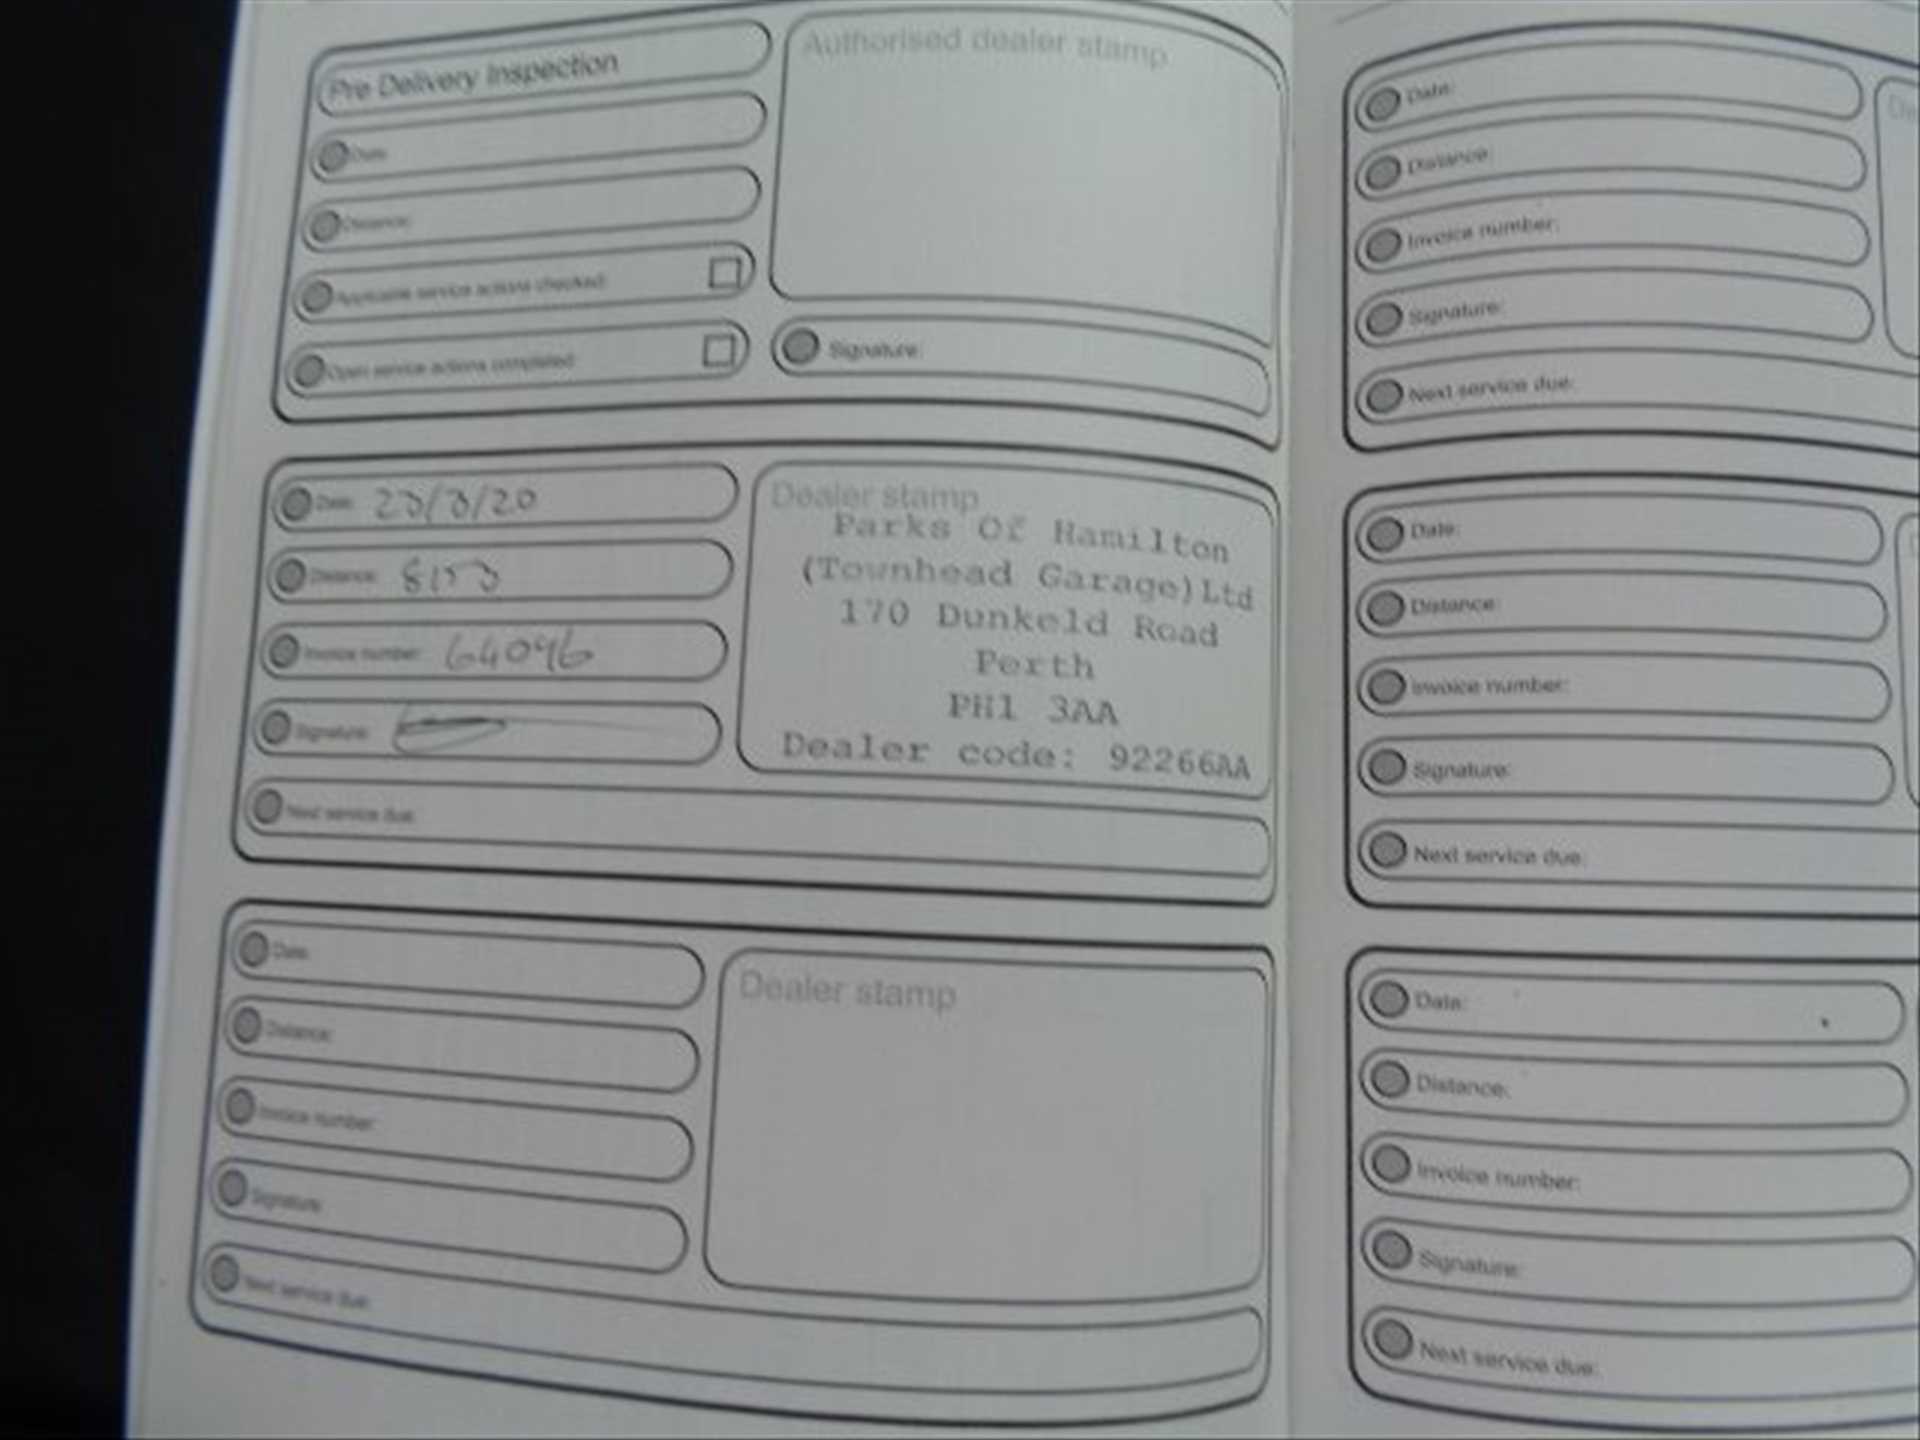 Pre Delivery Inspection
Authorised dealer stamp
Date:
Distance:
Applicable service actions checked:
Open service actions completed:
Signature:
Date: 23/3/20
Distance: 8153
Invoice number: 64096
Signature:
Next service due:
Dealer stamp
Parks Of Hamilton
(Townhead Garage)Ltd
170 Dunkeld Road
Perth
PH1 3AA
Dealer code: 92266AA
Date:
Distance:
Invoice number:
Signature:
Next service due:
Dealer stamp
Date:
Distance:
Invoice number:
Signature:
Next service due:
Date:
Distance:
Invoice number:
Signature:
Next service due:
Date:
Distance:
Invoice number:
Signature:
Next service due: